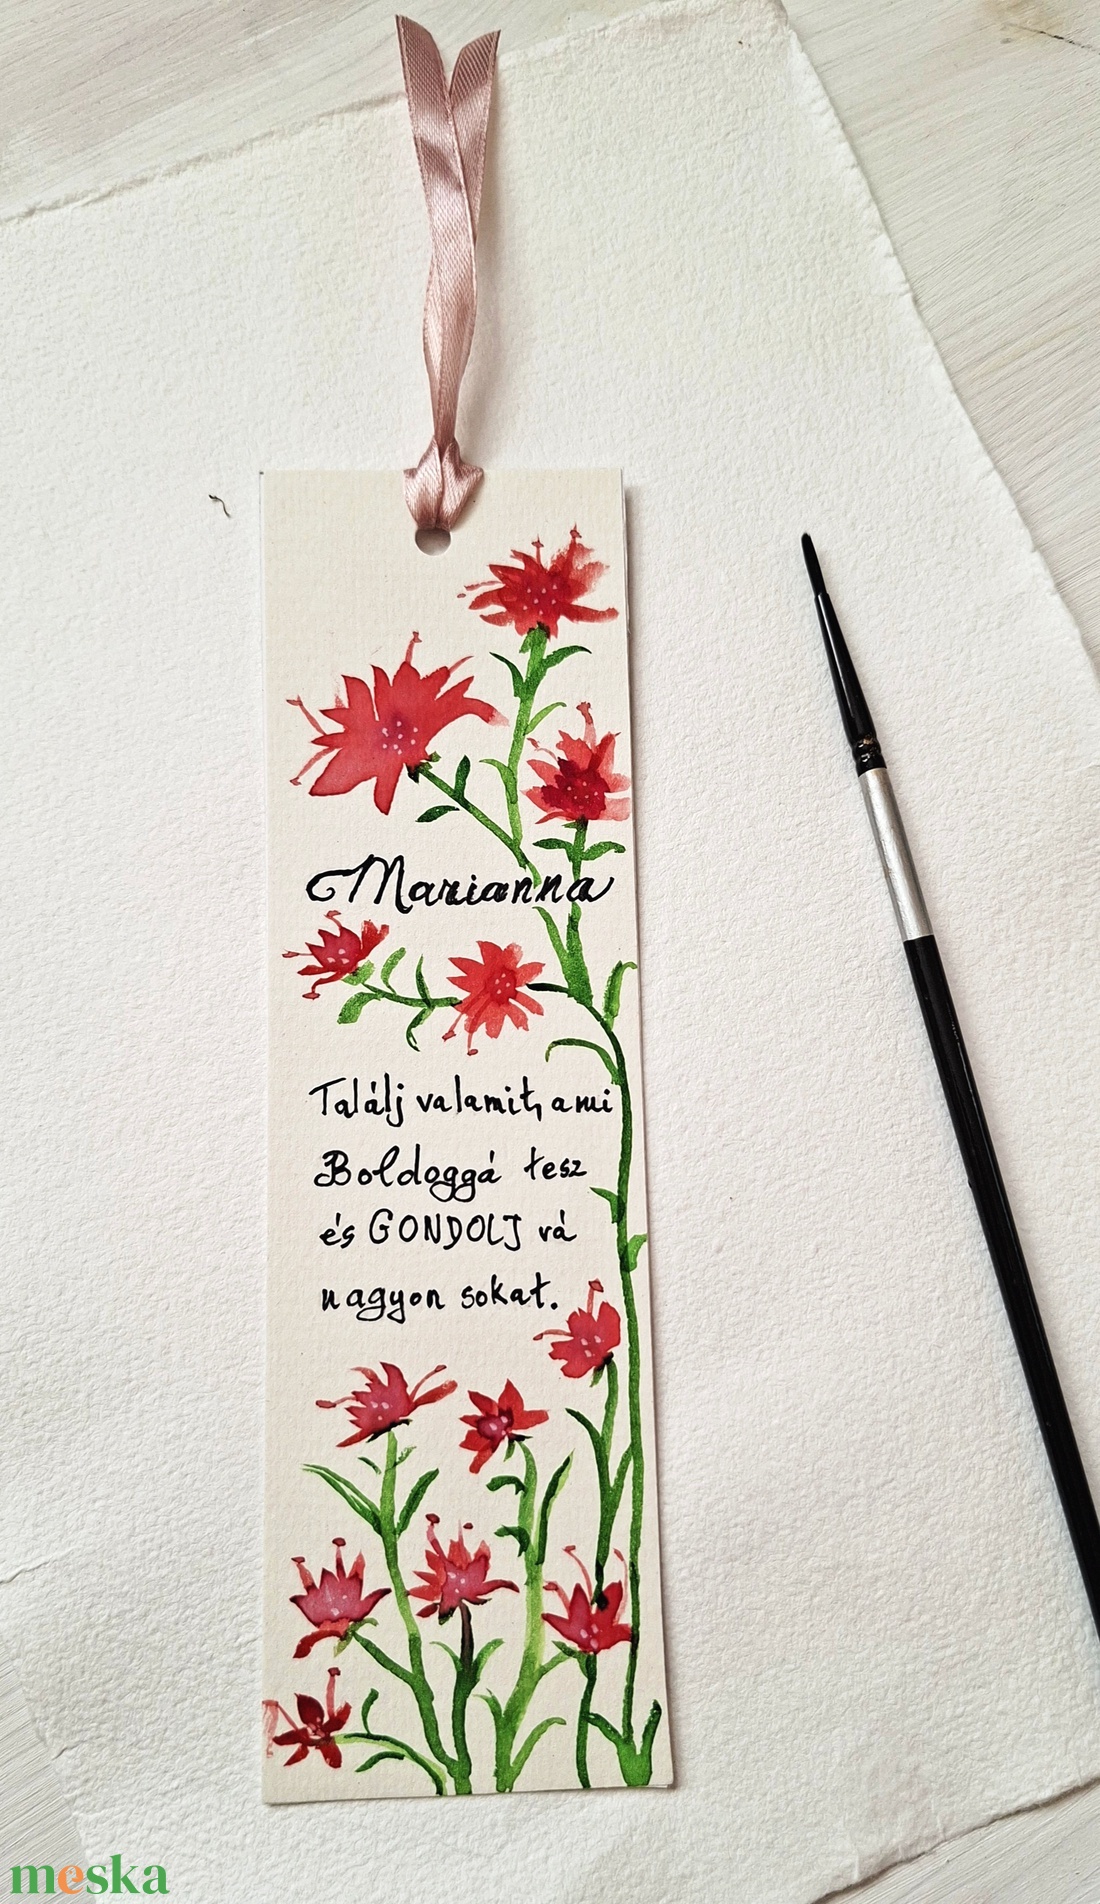 Marianna
Találj valamit, ami
Boldoggá tesz
és GONDOLJ rá
nagyon sokat.
meska